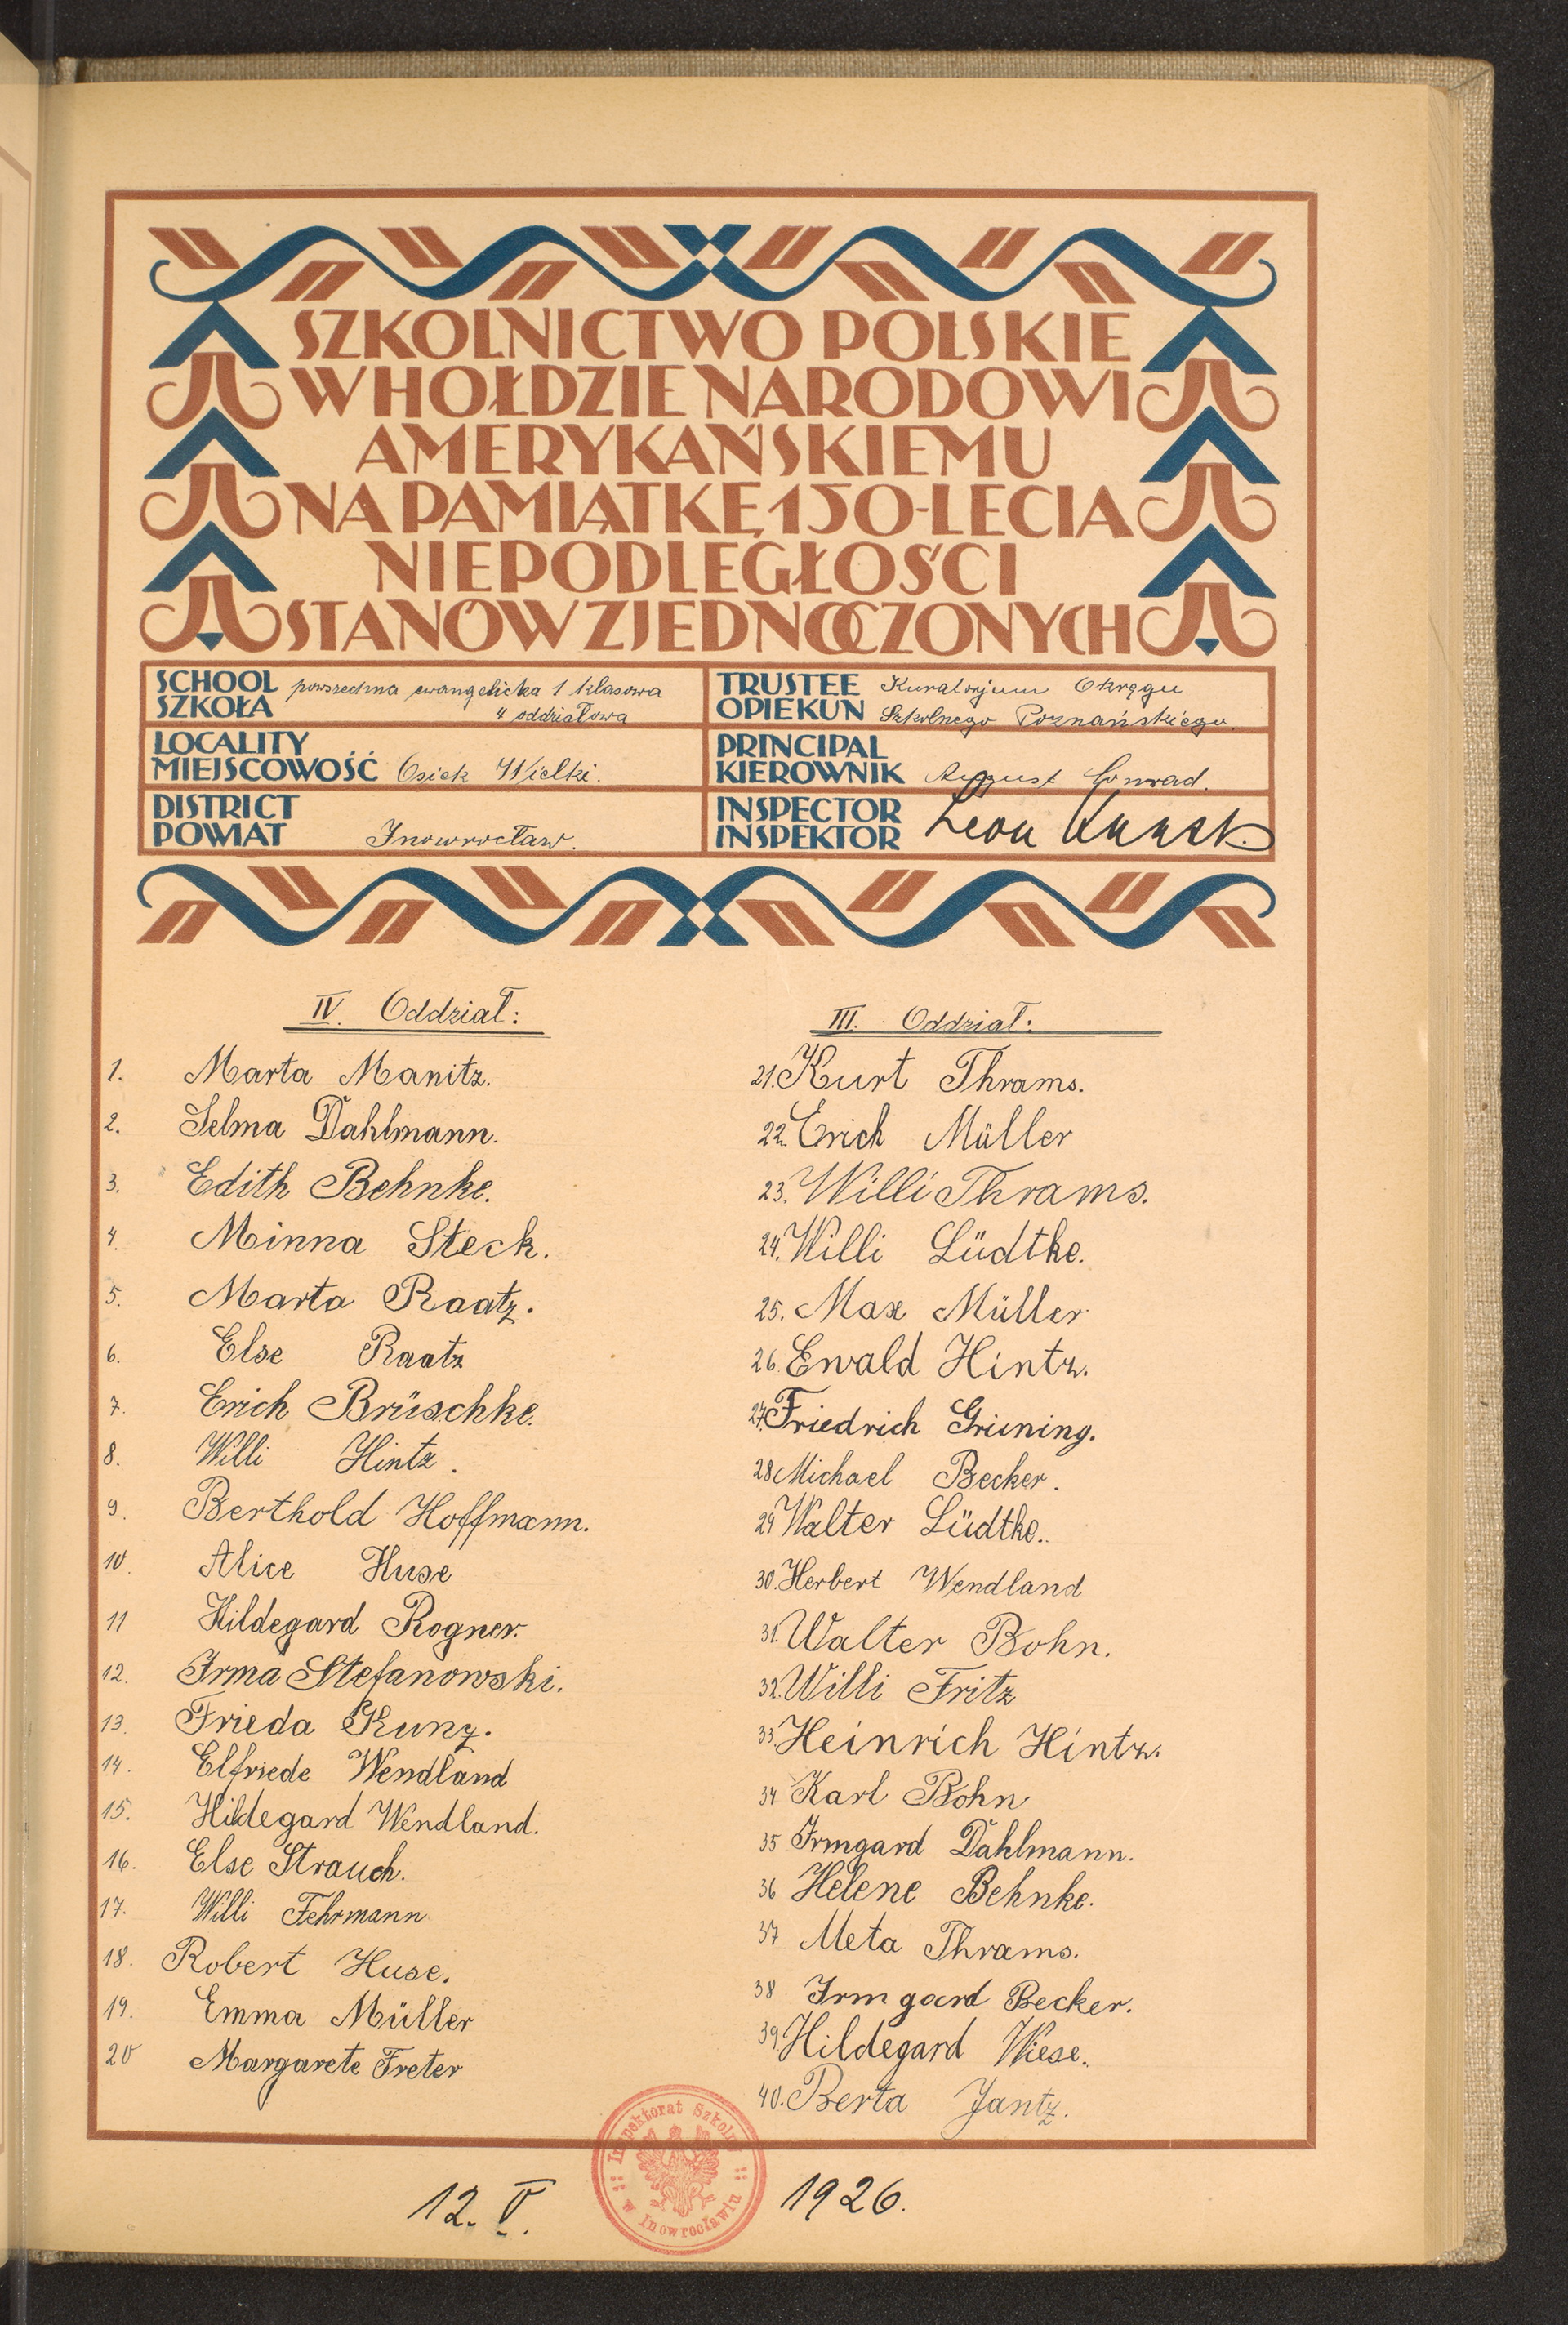 SZKOLNICTWO POLSKIE
W HOŁDZIE NARODOWI
AMERYKAŃSKIEMU
NA PAMIĄTKĘ 150-LECIA
NIEPODLEGŁOŚCI
STANÓW ZJEDNOCZONYCH
SCHOOL
SZKOŁA
powszechna ewangelicka 1 klasowa
4 oddziałowa
TRUSTEE
OPIEKUN
Kuratorjum Okręgu
Szkolnego Poznańskiego.
LOCALITY
MIEJSCOWOŚĆ Osiek Wielki.
PRINCIPAL
KIEROWNIK August Conrad.
DISTRICT
POWIAT Inowrocław.
INSPECTOR
INSPEKTOR Leon
IV. Oddział:
1. Marta Manitz.
2. Selma Dahlmann.
3. Edith Behnke.
4. Minna Steck.
5. Marta Raatz.
6. Else Raatz
7. Erich Brüschke.
8. Willi Hintz.
9. Berthold Hoffmann.
10. Alice Huse
11 Hildegard Rogner.
12. Irma Stefanowski.
13. Frieda Kunz.
14. Elfriede Wendland
15. Hildegard Wendland.
16. Else Strauch.
17. Willi Fehrmann
18. Robert Huse.
19. Emma Müller
20 Margarete Freter
III. Oddział:
21. Kurt Thrams.
22. Erich Müller
23. Willi Thrams.
24. Willi Lüdtke.
25. Max Müller
26. Ewald Hintz.
27. Friedrich Grüning.
28 Michael Becker.
29 Walter Lüdtke..
30. Herbert Wendland
31. Walter Bohn.
32. Willi Fritz
33. Heinrich Hintz.
34 Karl Bohn
35 Irmgard Dahlmann.
36 Helene Behnke.
37 Meta Thrams.
38 Irmgard Becker.
39 Hildegard Wiese.
40. Berta Jantz.
Inspektorat Szkolny
w Inowrocławiu
12. V. 1926.